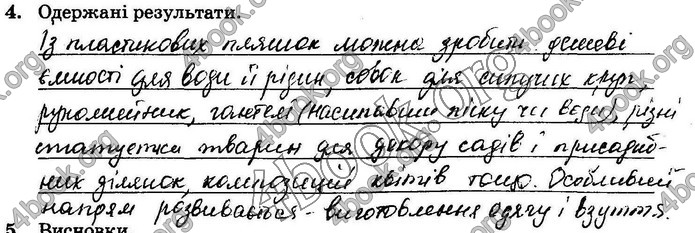 4. Одержані результати.
Із пластикових пляшок можна зробити дешеві
ємності для води й рідин, совок для сипучих круп,
рукомийник, гантелі (насипавши піску чи води), різні
статуетки тварин для декору садів і присадиб-
них ділянок, композицій квітів тощо. Особливий
напрям розвивається - виготовлення одягу і взуття.
5. Висновки